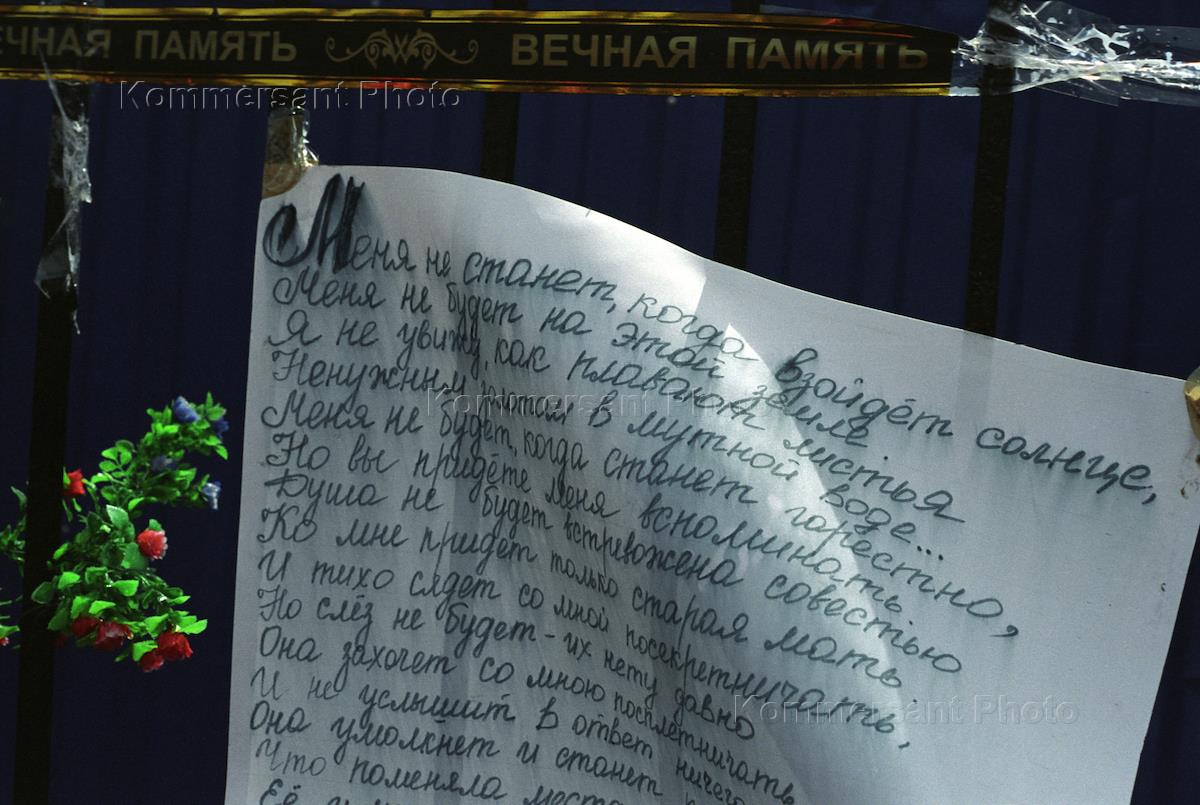 ЕЧНАЯ ПАМЯТЬ ВЕЧНАЯ ПАМЯТЬ
Kommersant Photo
Меня не станет, когда взойдёт солнце,
Меня не будет на этой земле.
Я не увижу, как плавают листья
Ненужным хламом в мутной воде...
Kommersant Photo
Меня не будет, когда станет горестно,
Но вы придёте меня вспоминать
Душа не будет встревожена совестью
Ко мне придёт только старая мать.
И тихо сядет со мной посекретничать,
Но слёз не будет - их нету давно
Kommersant Photo
Она захочет со мною посплетничать
И не услышит в ответ ничего
Она умолкнет и станет
Что поменяла места
Её